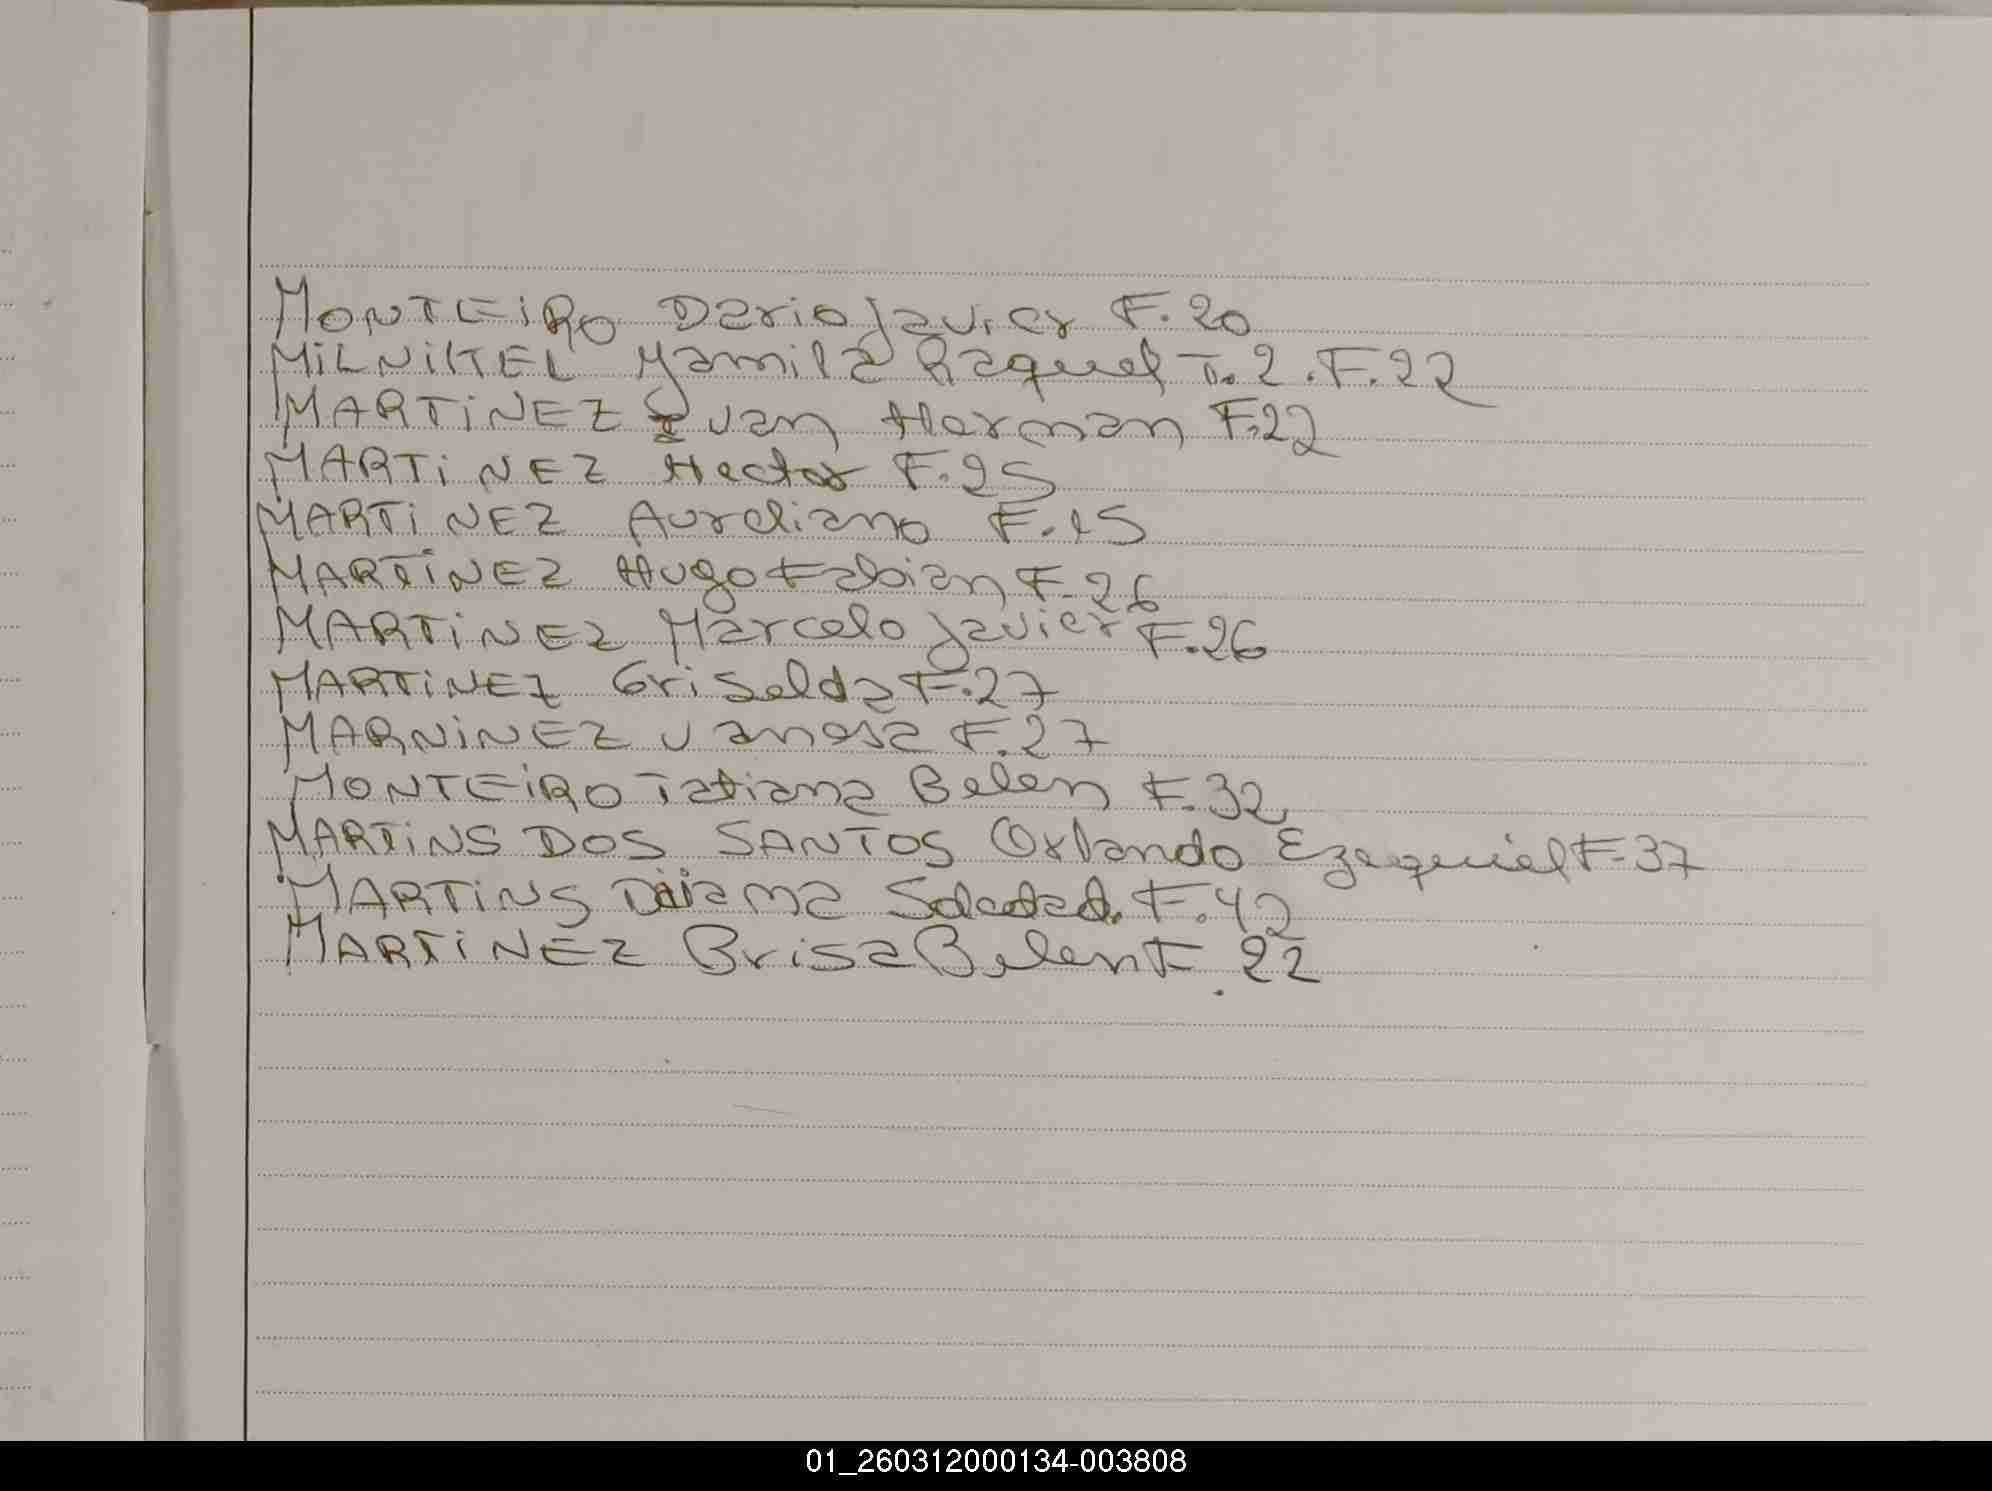 MONTEIRO Dario Javier F.20
MILNIKEL Yamila Raquel T.2.F.22
MARTINEZ Ivan Herman F.22
MARTINEZ Hector F.25
MARTINEZ Aureliano F.25
MARTINEZ Hugo Fabian F.26
MARTINEZ Marcelo Javier F.26
MARTINEZ Griselda F.27
MARNINEZ Vanesa F.27
MONTEIRO Tatiana Belen F.32
MARTINS DOS SANTOS Orlando Ezequiel F.37
MARTINS Daiana Soledad. F.42
MARTINEZ Brisa Belen F.22
01_260312000134-003808